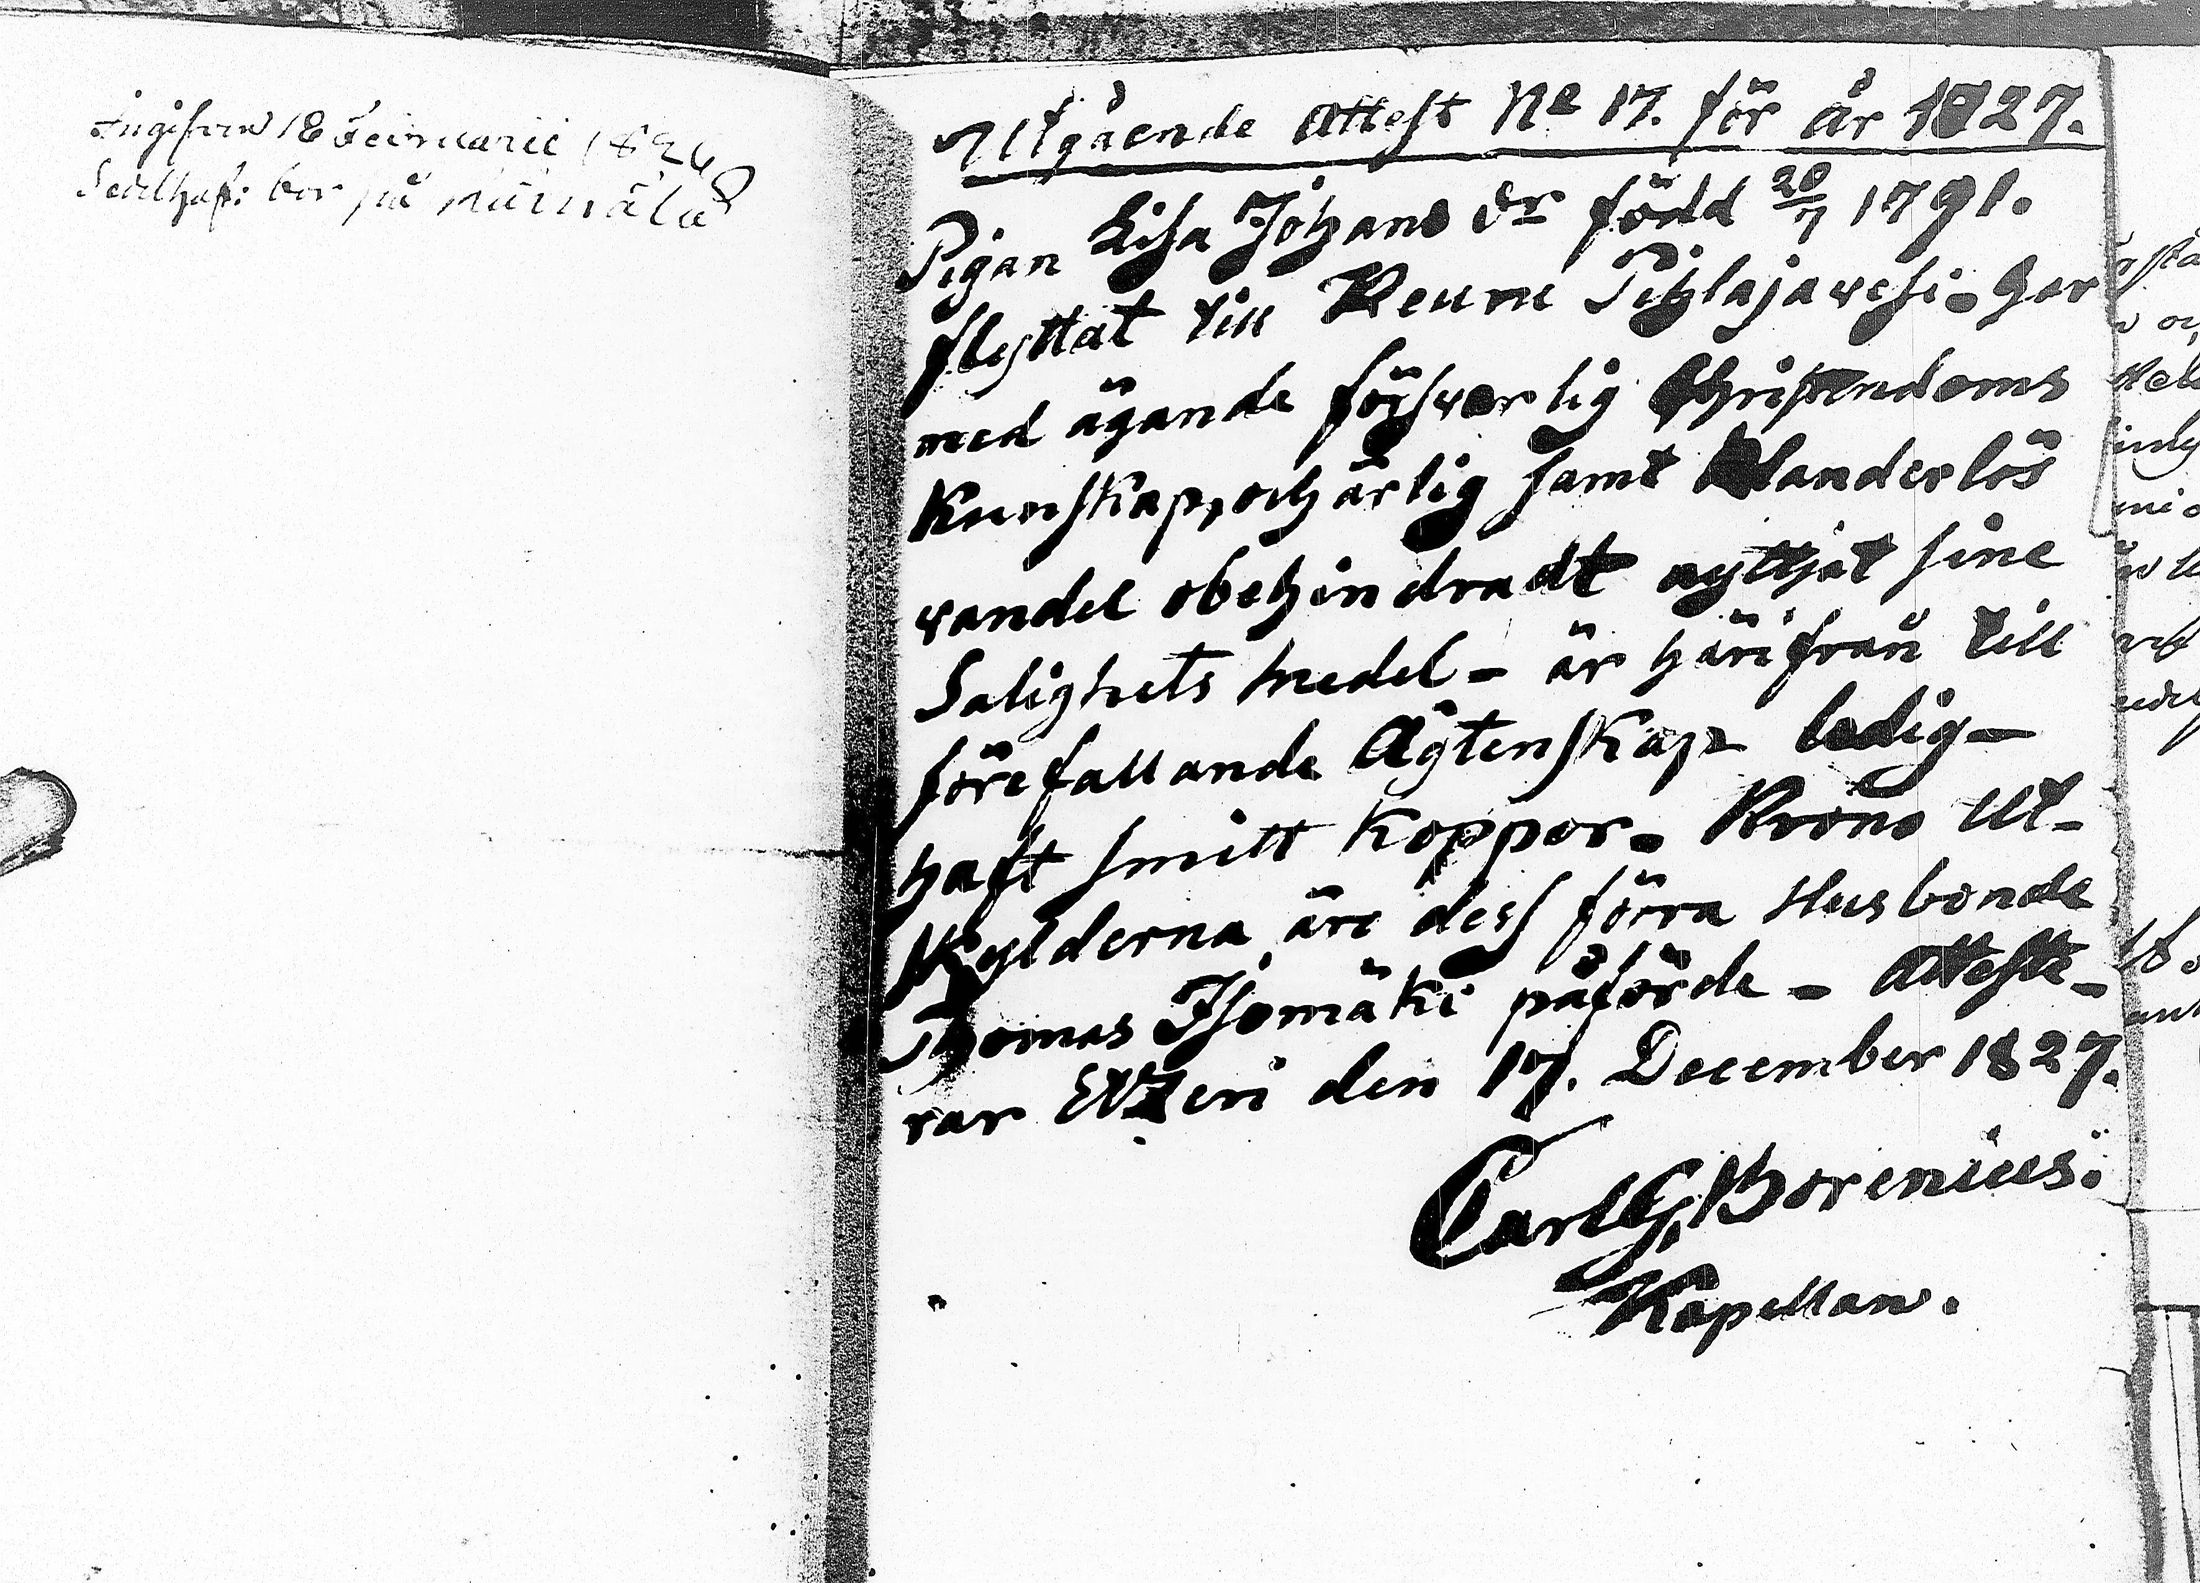 Ingifven 18 Februarii 1828
Sedelhaf: bor på
Utgående Attest No 17. för år 1827.
Pigan Lisa Johans dr född 20/7 1791.
flyttat till Keuru Pihlajawesi - har
med ägande försvarlig Christendoms
Kunskap, och ärlig samt klanderlös
vandel obehindradt nyttjat sine
Salighets medel - är härifrån till
förefallande Ägtenskap ledig -
haft smitt koppor. Krono Ut-
skylderna äre dess förra Husbonde
Thomas Isomäki påförde - Atteste-
rar Etzeri den 17. December 1827.
Carl G. Borenius.
Kapellan.